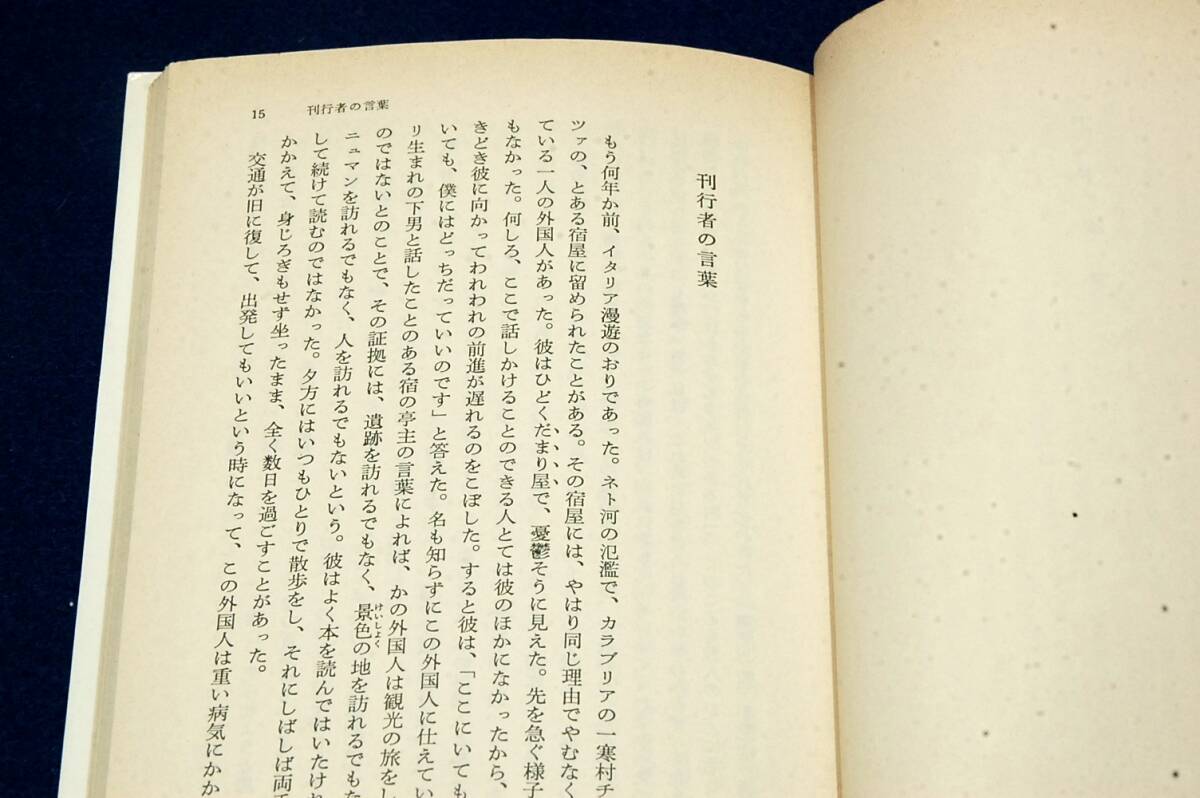 15 刊行者の言葉
刊行者の言葉
もう何年か前、イタリア漫遊のおりであった。ネト河の氾濫で、カラブリアの一寒村チ
ツァの、とある宿屋に留められたことがある。その宿屋には、やはり同じ理由でやむなく
ている一人の外国人があった。彼はひどくだまり屋で、憂鬱そうに見えた。先を急ぐ様子
もなかった。何しろ、ここで話しかけることのできる人とては彼のほかになかったから、
きどき彼に向かってわれわれの前進が遅れるのをこぼした。すると彼は、「ここにいても
いても、僕にはどっちだっていいのです」と答えた。名も知らずにこの外国人に仕えてい
リ生まれの下男と話したことのある宿の亭主の言葉によれば、かの外国人は観光の旅をし
のではないとのことで、その証拠には、遺跡を訪れるでもなく、景色の地を訪れるでもな
ニュマンを訪れるでもなく、人を訪れるでもないという。彼はよく本を読んではいたけれ
して続けて読むのではなかった。夕方にはいつもひとりで散歩をし、それにしばしば両手
かかえて、身じろぎもせず坐ったまま、全く数日を過ごすことがあった。
交通が旧に復して、出発してもいいという時になって、この外国人は重い病気にかか